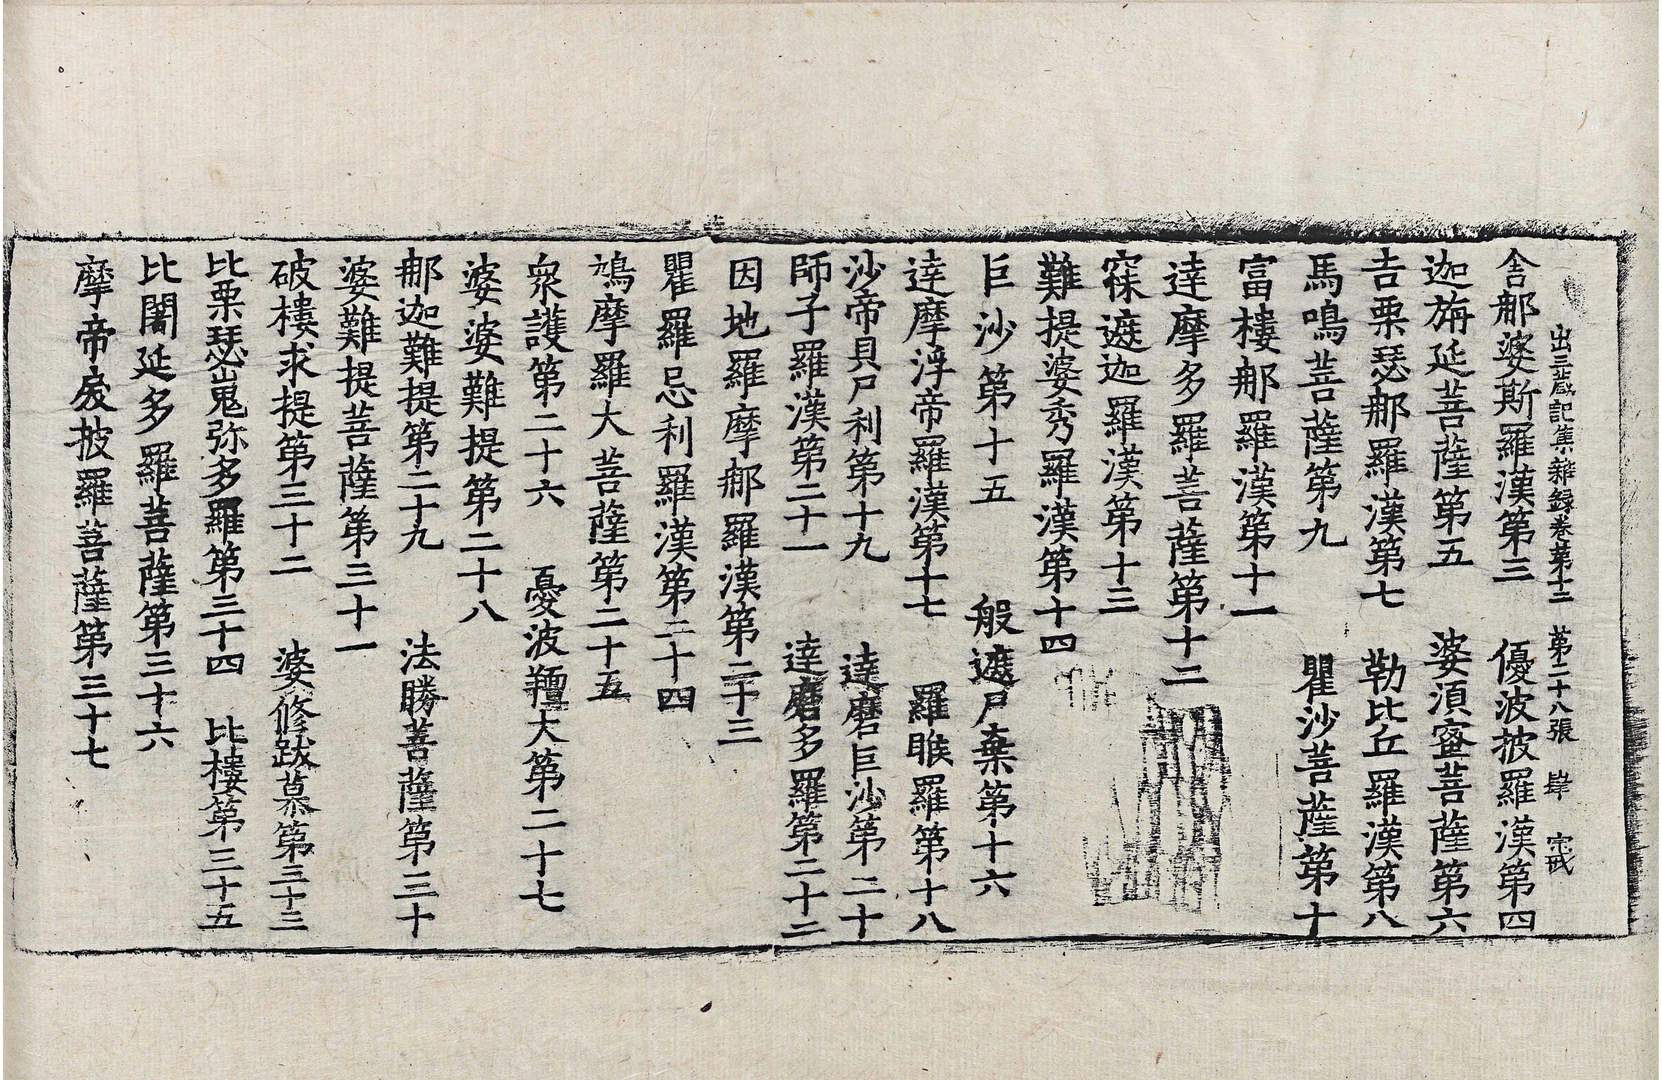 出三藏記集雜録卷第十二　第二十八張　肆　宗武
舍那婆斯羅漢第三　優波掘羅漢第四
迦旃延菩薩第五　婆湏蜜菩薩第六
吉栗瑟那羅漢第七　勒比丘羅漢第八
馬鳴菩薩第九　瞿沙菩薩第十
富樓那羅漢第十一
達摩多羅菩薩第十二
寐遮迦羅漢第十三
難提婆秀羅漢第十四
巨沙第十五　般遮尸棄第十六
達摩浮帝羅漢第十七　羅睺羅第十八
沙帝貝尸利第十九　達磨巨沙第二十
師子羅漢第二十一　達磨多羅第二十二
因地羅摩那羅漢第二十三
瞿羅忌利羅漢第二十四
鳩摩羅大菩薩第二十五
衆護第二十六　憂波羶大第二十七
婆婆難提第二十八
那迦難提第二十九　法勝菩薩第三十
婆難提菩薩第三十一
破樓求提第三十二　婆修跋慕第三十三
比栗瑟嵬弥多羅第三十四　比樓第三十五
比闍延多羅菩薩第三十六
摩帝戾披羅菩薩第三十七